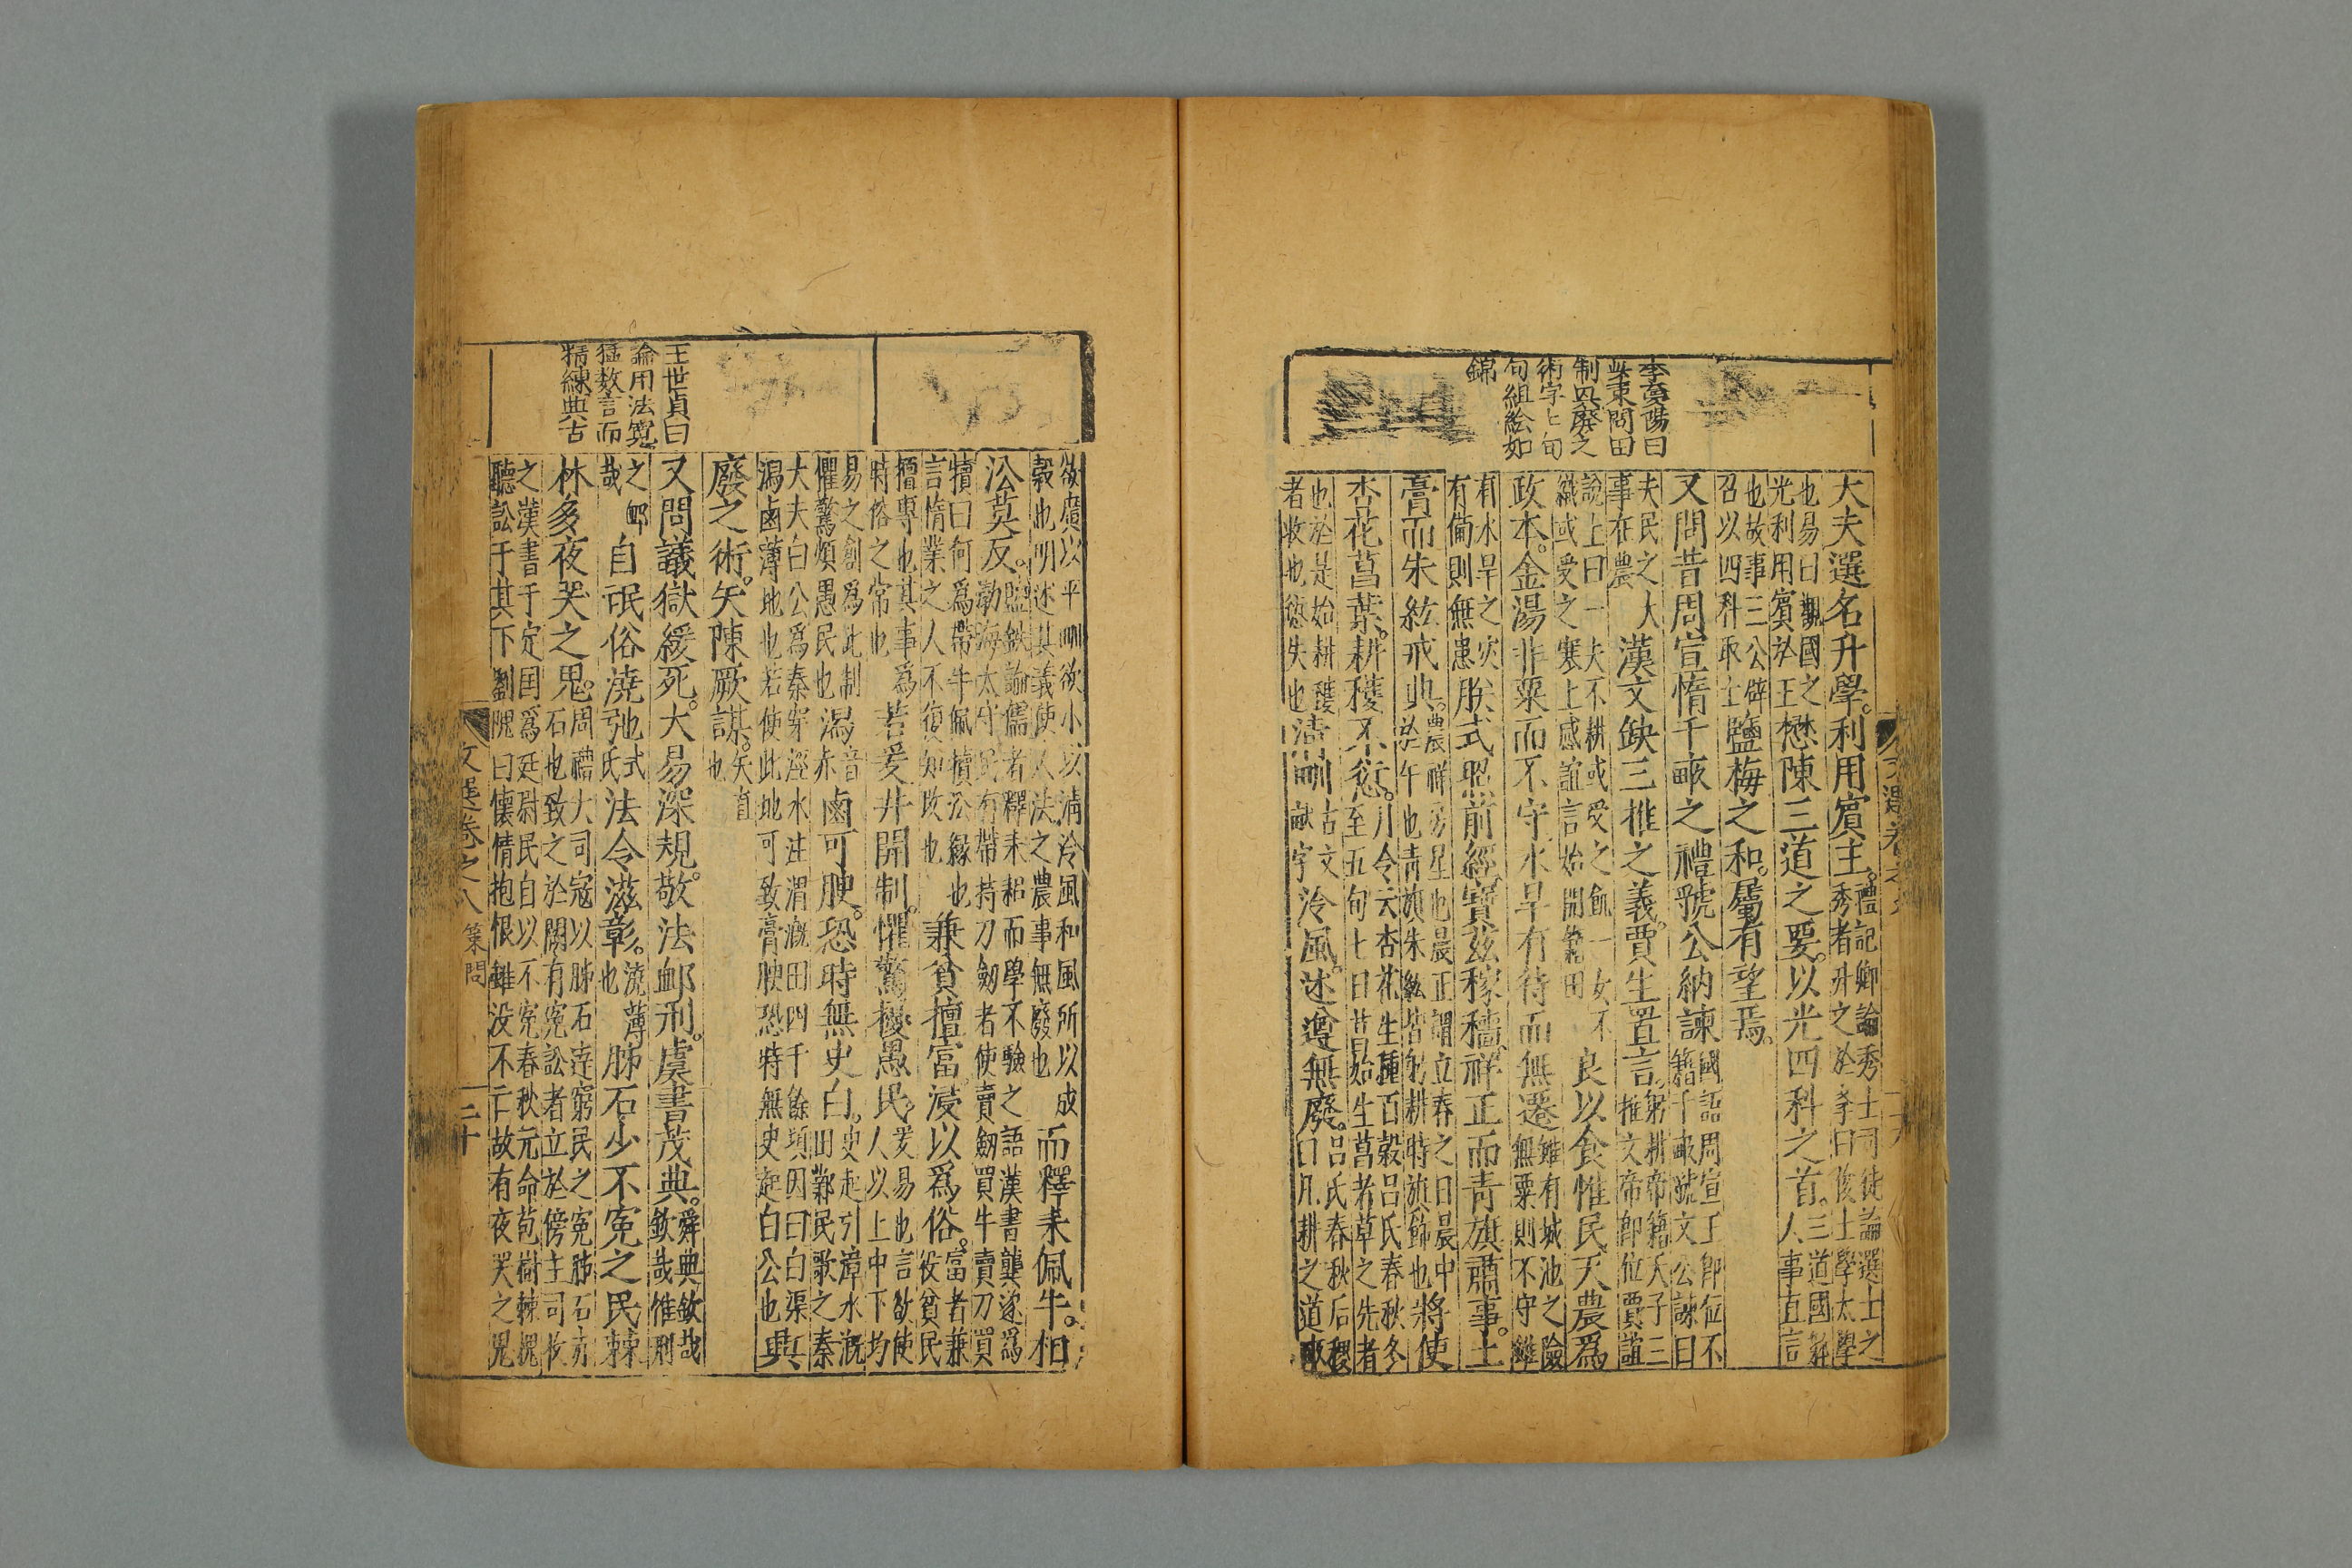 李賁陽曰
此東問田
制興廢之
術字上句
句組絵如
錦
大夫選名升學利用賓王禮記鄉論秀士司徒論選士之
秀者升之於學曰俊士學太學
也易曰觀國之
光利用賓於王懋陳三道之要以光四科之首三道國
人事直言
也故事三公辟
召以四科取士鹽梅之和屬有望焉
又問昔周宣惰千畝之禮虢公納諫國語周宣王即位不
籍千畝虢文公諫曰
夫民之大
事在農漢文缺三推之義賈生置言躬耕帝籍天子三
推文帝即位賈誼
說上曰一夫不耕或受之飢一女不
織或受之寒上感誼言始開籍田良以食惟民天農爲
政本金湯非粟而不守水旱有待而無遷雖有城池之險
無粟則不守雖
有水旱之災
有備則無患朕式照前經寶茲稼穡祥正而青旗肅事土
膏而朱紘戒典農祥房星也晨正謂立春之日晨中
於午也青旗朱紘皆躬耕時旗飾也將使
杏花菖葉耕穫不愆月令云杏花生種百穀呂氏春秋冬
至五旬七日菖始生菖者草之先者
也於是始耕穫
者收也愆失也清甽古文
畎字泠風述遵無廢呂氏春秋后稷
曰凡耕之道畝
王世貞曰
論用法寬
猛数言而
精練典古
欲廣以平甽欲小以清泠風和風所以成
穀也明述其義使人法之農事無廢也而釋耒佩牛相
沿莫反鹽鉄論儒者釋耒耜而學不驗之語漢書龔遂爲
渤海太守民有帶持刀劒者使賣劒買牛賣刀買
犢曰何爲帶牛佩犢沿緣也
言惰業之人不復知改也兼貧擅富浸以爲俗富者兼
役貧民
擅專也其事爲
時俗之常也若爰井開制懼驚擾愚民爰易也言欲使
人以上中下均
易之創爲此制
懼驚煩愚民也潟音
赤鹵可腴恐時無史白史起引漳水漑
田鄴民歌之秦
大夫白公爲秦穿涇水注渭漑田四千餘頃因曰白渠
潟鹵薄地也若使此地可致膏腴恐特無史起白公也興
廢之術矢陳厥謀矢直
也
又問議獄緩死大易深規敬法卹刑虞書茂典舜典欽哉
欽哉惟刑
之卹
哉自氓俗澆弛式
氏法令滋彰澆薄
也肺石少不寃之民棘
林多夜哭之鬼周禮大司寇以肺石達窮民之寃肺石赤
石也致之於闕有寃訟者立於傍主司收
之漢書于定国爲廷尉民自以不寃春秋元命苞樹棘槐
聽訟于其下劉隗曰懷情抱恨雖没不亡故有夜哭之鬼
文選卷之八 策問 二十